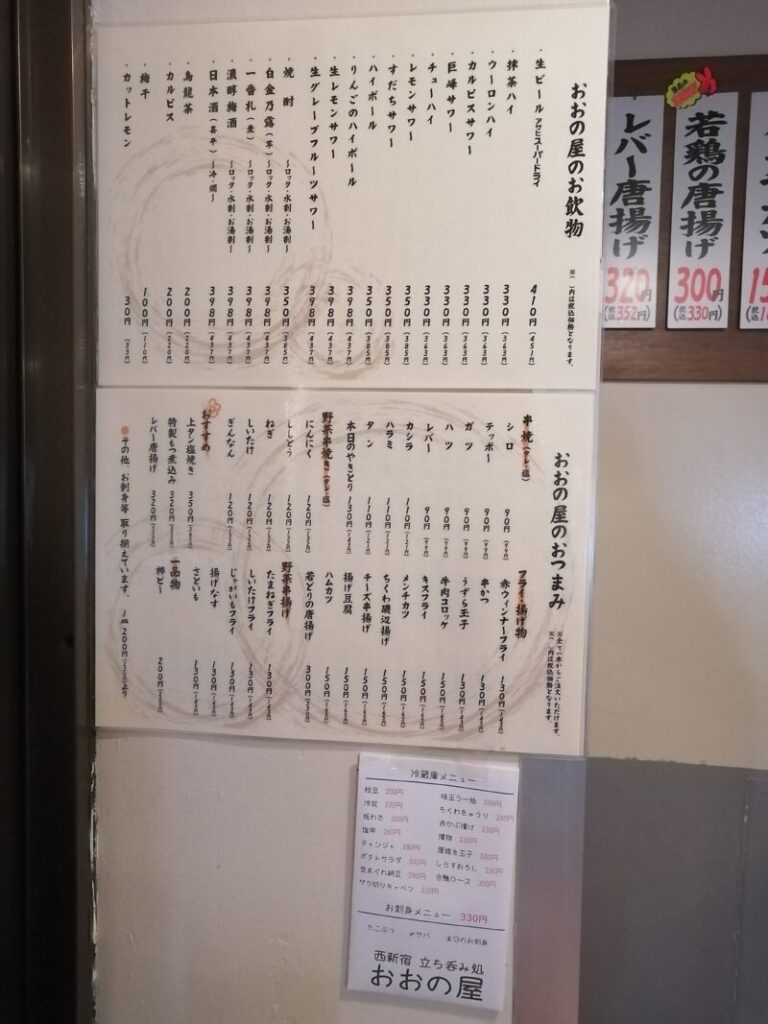 おおの屋のお飲物
※( )内は税込価格となります。
・生ビール アサヒスーパードライ 410円(451円)
・抹茶ハイ 330円(363円)
・ウーロンハイ 330円(363円)
・カルピスサワー 330円(363円)
・巨峰サワー 330円(363円)
・チューハイ 330円(363円)
・レモンサワー 350円(385円)
・すだちサワー 350円(385円)
・ハイボール 350円(385円)
・りんごのハイボール 398円(437円)
・生レモンサワー 398円(437円)
・生グレープフルーツサワー 398円(437円)
・焼酎 ～ロック・水割・お湯割～ 350円(385円)
・白金乃露(芋) ～ロック・水割・お湯割～ 398円(437円)
・一番札(麦) ～ロック・水割・お湯割～ 398円(437円)
・濃醇梅酒 ～ロック・水割・お湯割～ 398円(437円)
・日本酒(喜平) ～冷・燗～ 398円(437円)
・烏龍茶 200円(220円)
・カルピス 200円(220円)
・梅干 100円(110円)
・カットレモン 30円(33円)
おおの屋のおつまみ
※全て一本からご注文いただけます。
※( )内は税込価格となります。
串焼(タレ・塩)
シロ 90円(99円)
テッポー 90円(99円)
ガツ 90円(99円)
ハツ 90円(99円)
レバー 90円(99円)
カシラ 110円(121円)
ハラミ 110円(121円)
タン 110円(121円)
本日のやきとり 130円(143円)
野菜串焼き(タレ・塩)
にんにく 120円(132円)
ししとう 120円(132円)
ねぎ 120円(132円)
しいたけ 120円(132円)
ぎんなん 120円(132円)
おすすめ
上タン塩焼き 350円(385円)
特製もつ煮込み 320円(352円)
レバー唐揚げ 320円(352円)
フライ・揚げ物
赤ウィンナーフライ 130円(143円)
串かつ 130円(143円)
うずら玉子 130円(143円)
牛肉コロッケ 150円(165円)
キスフライ 150円(165円)
メンチカツ 150円(165円)
ちくわ磯辺揚げ 150円(165円)
チーズ串揚げ 150円(165円)
揚げ豆腐 150円(165円)
ハムカツ 150円(165円)
若どりの唐揚げ 300円(330円)
野菜串揚げ
たまねぎフライ 130円(143円)
しいたけフライ 130円(143円)
じゃがいもフライ 130円(143円)
揚げなす 130円(143円)
さといも 130円(143円)
一品物
柿ピー 200円(220円)
●その他、お刺身等 取り揃えています。 一皿 200円(220円)より
若鶏の唐揚げ
300円
(税込330円)
レバー唐揚げ
320円
(税込352円)
冷蔵庫メニュー
枝豆 200円
冷奴 230円
板わさ 200円
塩辛 280円
チャンジャ 280円
ポテトサラダ 300円
気まぐれ納豆 380円
ザク切りキャベツ 200円
味玉ラー油 200円
ちくわきゅうり 280円
赤かぶ漬け 230円
漬物 230円
厚焼き玉子 280円
しらすおろし 230円
合鴨ロース 300円
お刺身メニュー 330円
たこぶつ 〆サバ 本日のお刺身
西新宿 立ち呑み処
おおの屋